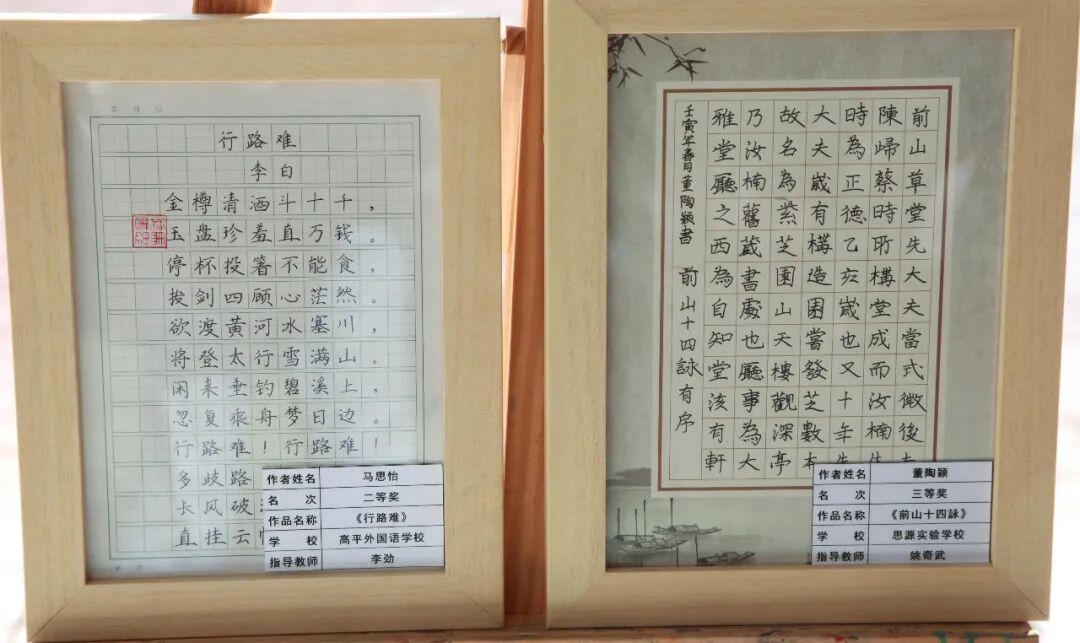 行路难
李白
金樽清酒斗十千，
玉盘珍羞直万钱。
停杯投箸不能食，
拔剑四顾心茫然。
欲渡黄河水塞川，
将登太行雪满山。
闲来垂钓碧溪上，
忽复乘舟梦日边。
行路难！行路难！
多歧路
长风破
直挂云
作者姓名 马思怡
名次 二等奖
作品名称 《行路难》
学校 高平外国语学校
指导教师 李劲
前山草堂先大夫當式微後
陳歸蔡時所構堂成而汝楠
時為正德乙亥歲也又十年
大夫歲有構造園嘗發芝數本
故名為紫芝園山天樓觀深亭
乃汝楠舊藏書處也廳事為大
雅堂廳之西為自知堂該有軒
壬寅年春月董陶颖書 前山十四詠有序
作者姓名 董陶颖
名次 三等奖
作品名称 《前山十四詠》
学校 思源实验学校
指导教师 姚寄武